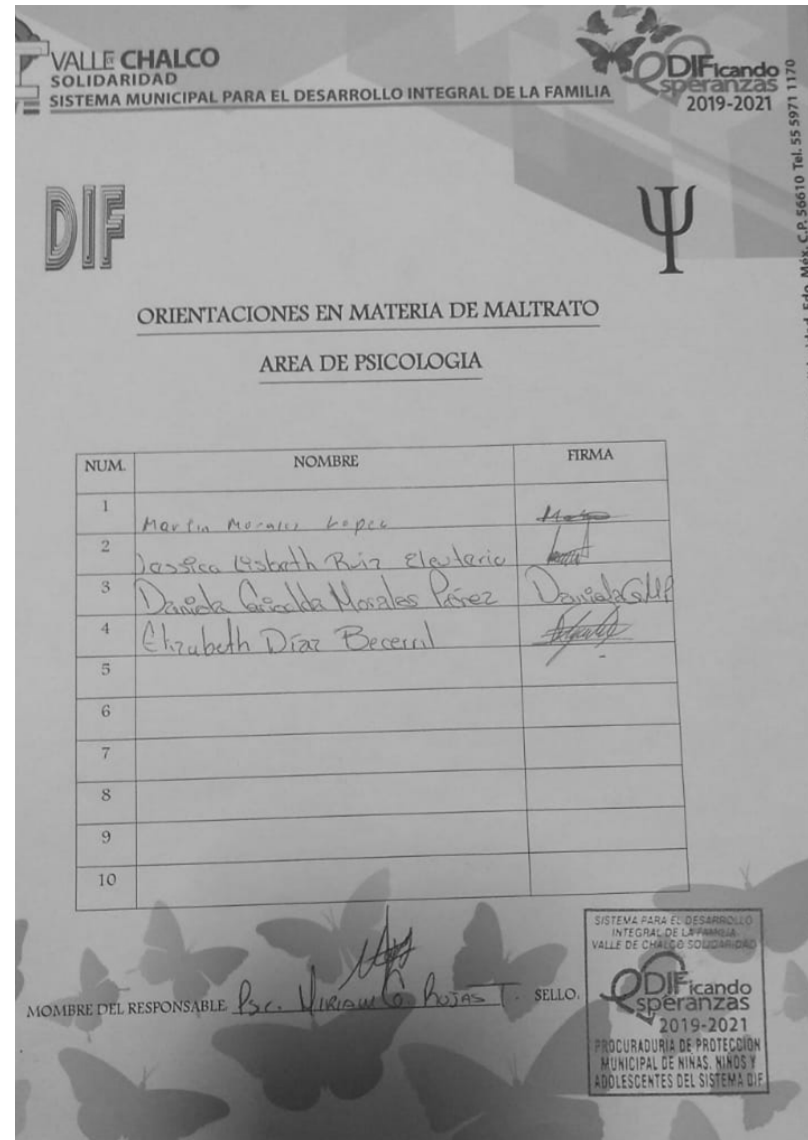 VALLE DE CHALCO
SOLIDARIDAD
SISTEMA MUNICIPAL PARA EL DESARROLLO INTEGRAL DE LA FAMILIA
DIFicando
speranzas
2019-2021
Edo. Méx. C.P. 56610 Tel. 55 5971 1170
DIF
Ψ
ORIENTACIONES EN MATERIA DE MALTRATO
AREA DE PSICOLOGIA
NUM. NOMBRE FIRMA
1 Martin Morales Lopez
2 Jessica Lisbeth Ruiz Eleuterio
3 Daniela Griselda Morales Pérez DanielaGMP
4 Elizabeth Díaz Becerril
5
6
7
8
9
10
MOMBRE DEL RESPONSABLE. Psc. Miriam G Rojas T. SELLO.
SISTEMA PARA EL DESARROLLO
INTEGRAL DE LA FAMILIA
VALLE DE CHALCO SOLIDARIDAD
DIFicando
speranzas
2019-2021
PROCURADURIA DE PROTECCIÓN
MUNICIPAL DE NIÑAS, NIÑOS Y
ADOLESCENTES DEL SISTEMA DIF